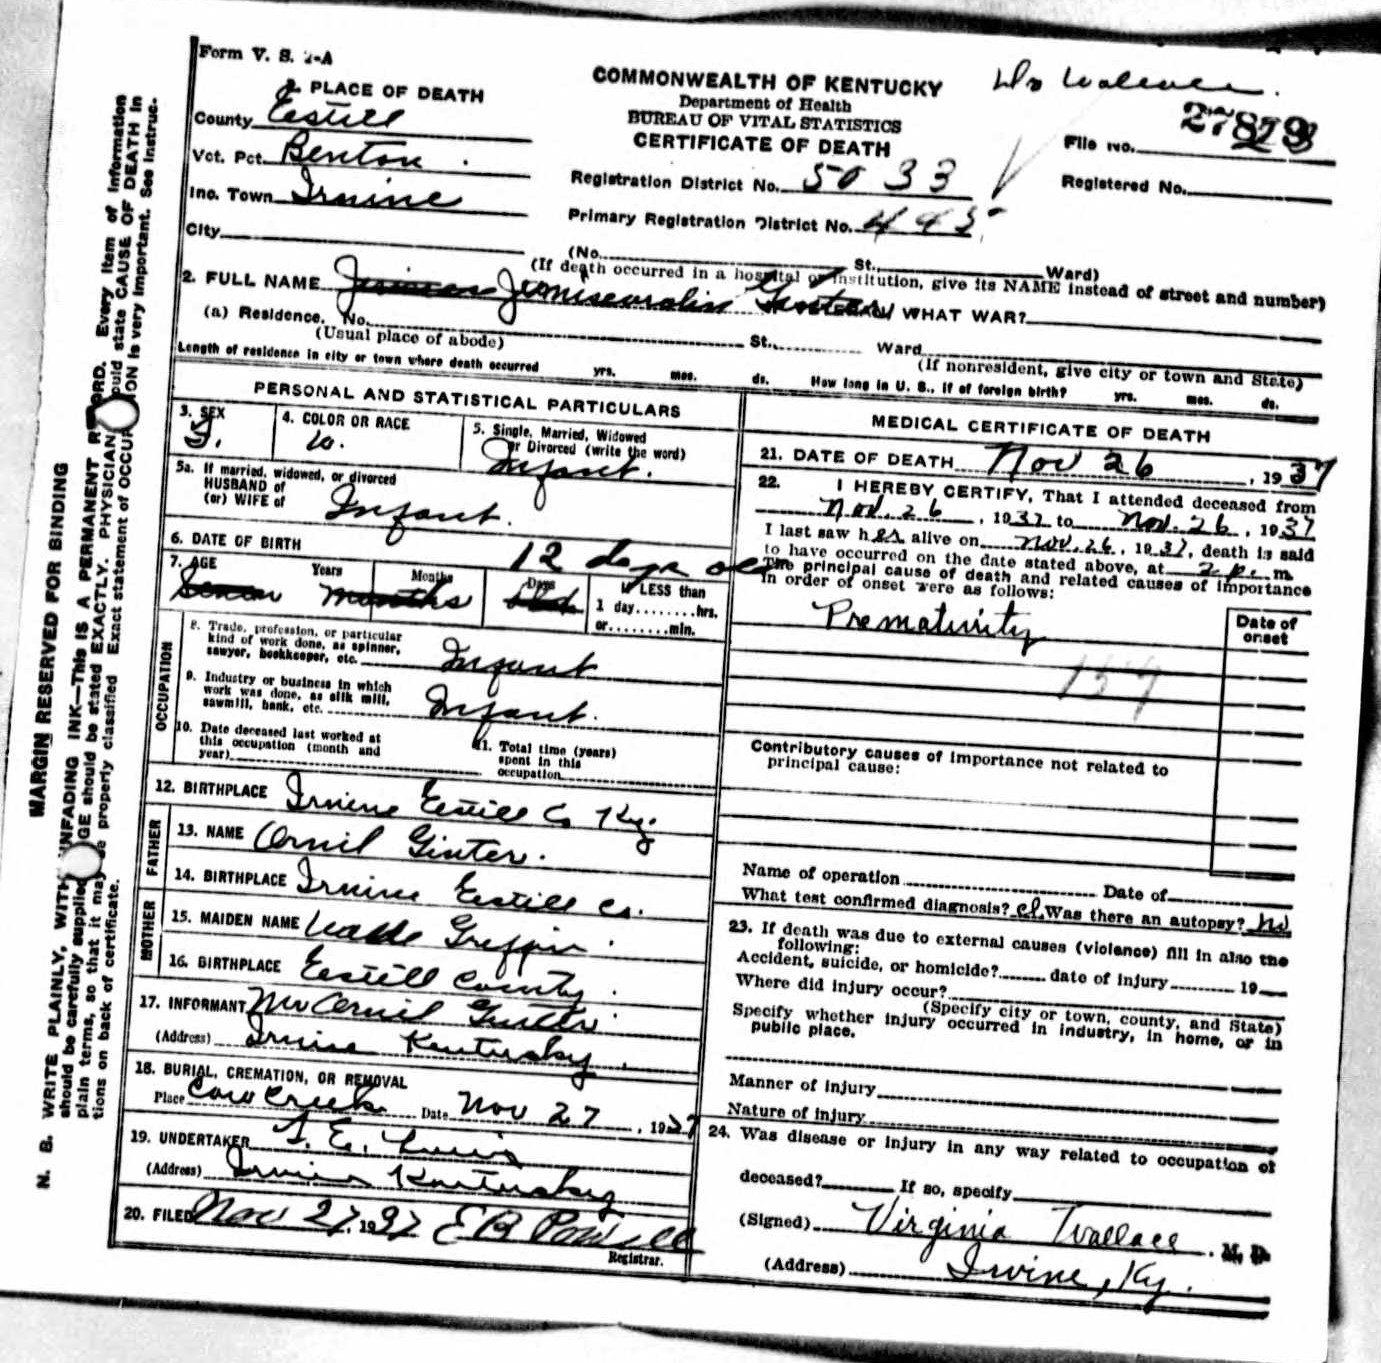 Form V. S. 2-A
COMMONWEALTH OF KENTUCKY
Department of Health
BUREAU OF VITAL STATISTICS
CERTIFICATE OF DEATH
Dr Wallace.
1. PLACE OF DEATH
County Estill
Vot. Pct. Benton.
Inc. Town Irvine
City
Registration District No. 5033
Primary Registration District No. 445
File No. 27
Registered No.
(No. St., Ward)
(If death occurred in a hospital or institution, give its NAME instead of street and number)
2. FULL NAME Ginter WHAT WAR?
(a) Residence. No. St., Ward
(Usual place of abode) (If nonresident, give city or town and State)
Length of residence in city or town where death occurred yrs. mos. ds. How long in U. S., if of foreign birth? yrs. mos. ds.
PERSONAL AND STATISTICAL PARTICULARS
3. SEX F.
4. COLOR OR RACE W.
5. Single, Married, Widowed
or Divorced (write the word)
Infant.
5a. If married, widowed, or divorced
HUSBAND of
(or) WIFE of Infant.
6. DATE OF BIRTH 12 days old
7. AGE Years Months Days If LESS than
Months 1 day........hrs.
or........min.
OCCUPATION
8. Trade, profession, or particular
kind of work done, as spinner,
sawyer, bookkeeper, etc. Infant
9. Industry or business in which
work was done, as silk mill,
sawmill, bank, etc. Infant.
10. Date deceased last worked at
this occupation (month and
year)
11. Total time (years)
spent in this
occupation
12. BIRTHPLACE Irvine Estill Co Ky.
FATHER
13. NAME Ornil Ginter.
14. BIRTHPLACE Irvine Estill Co.
MOTHER
15. MAIDEN NAME Griffin.
16. BIRTHPLACE Estill County.
17. INFORMANT Mr Ornil Ginter
(Address) Irvine Kentucky.
18. BURIAL, CREMATION, OR REMOVAL
Place Cow Creek Date Nov 27, 1937
19. UNDERTAKER
(Address) Irvine Kentucky
20. FILED Nov 27, 1937 E B Powell
Registrar.
MEDICAL CERTIFICATE OF DEATH
21. DATE OF DEATH Nov 26, 1937
22. I HEREBY CERTIFY, That I attended deceased from
Nov. 26, 1937 to Nov. 26, 1937
I last saw her alive on Nov. 26, 1937, death is said
to have occurred on the date stated above, at 2 p. m
The principal cause of death and related causes of importance
in order of onset were as follows:
Date of
onset
Prematurity
159
Contributory causes of importance not related to
principal cause:
Name of operation Date of
What test confirmed diagnosis? Cl. Was there an autopsy? No
23. If death was due to external causes (violence) fill in also the
following:
Accident, suicide, or homicide? date of injury 19
Where did injury occur?
(Specify city or town, county, and State)
Specify whether injury occurred in industry, in home, or in
public place.
Manner of injury
Nature of injury
24. Was disease or injury in any way related to occupation of
deceased? If so, specify
(Signed) Virginia Wallace, M. D.
(Address) Irvine, Ky.
MARGIN RESERVED FOR BINDING
N. B. WRITE PLAINLY, WITH UNFADING INK—THIS IS A PERMANENT RECORD. Every item of information
should be carefully supplied. AGE should be stated EXACTLY. PHYSICIANS should state CAUSE OF DEATH in
plain terms, so that it may be properly classified. Exact statement of OCCUPATION is very important. See Instruc-
tions on back of certificate.